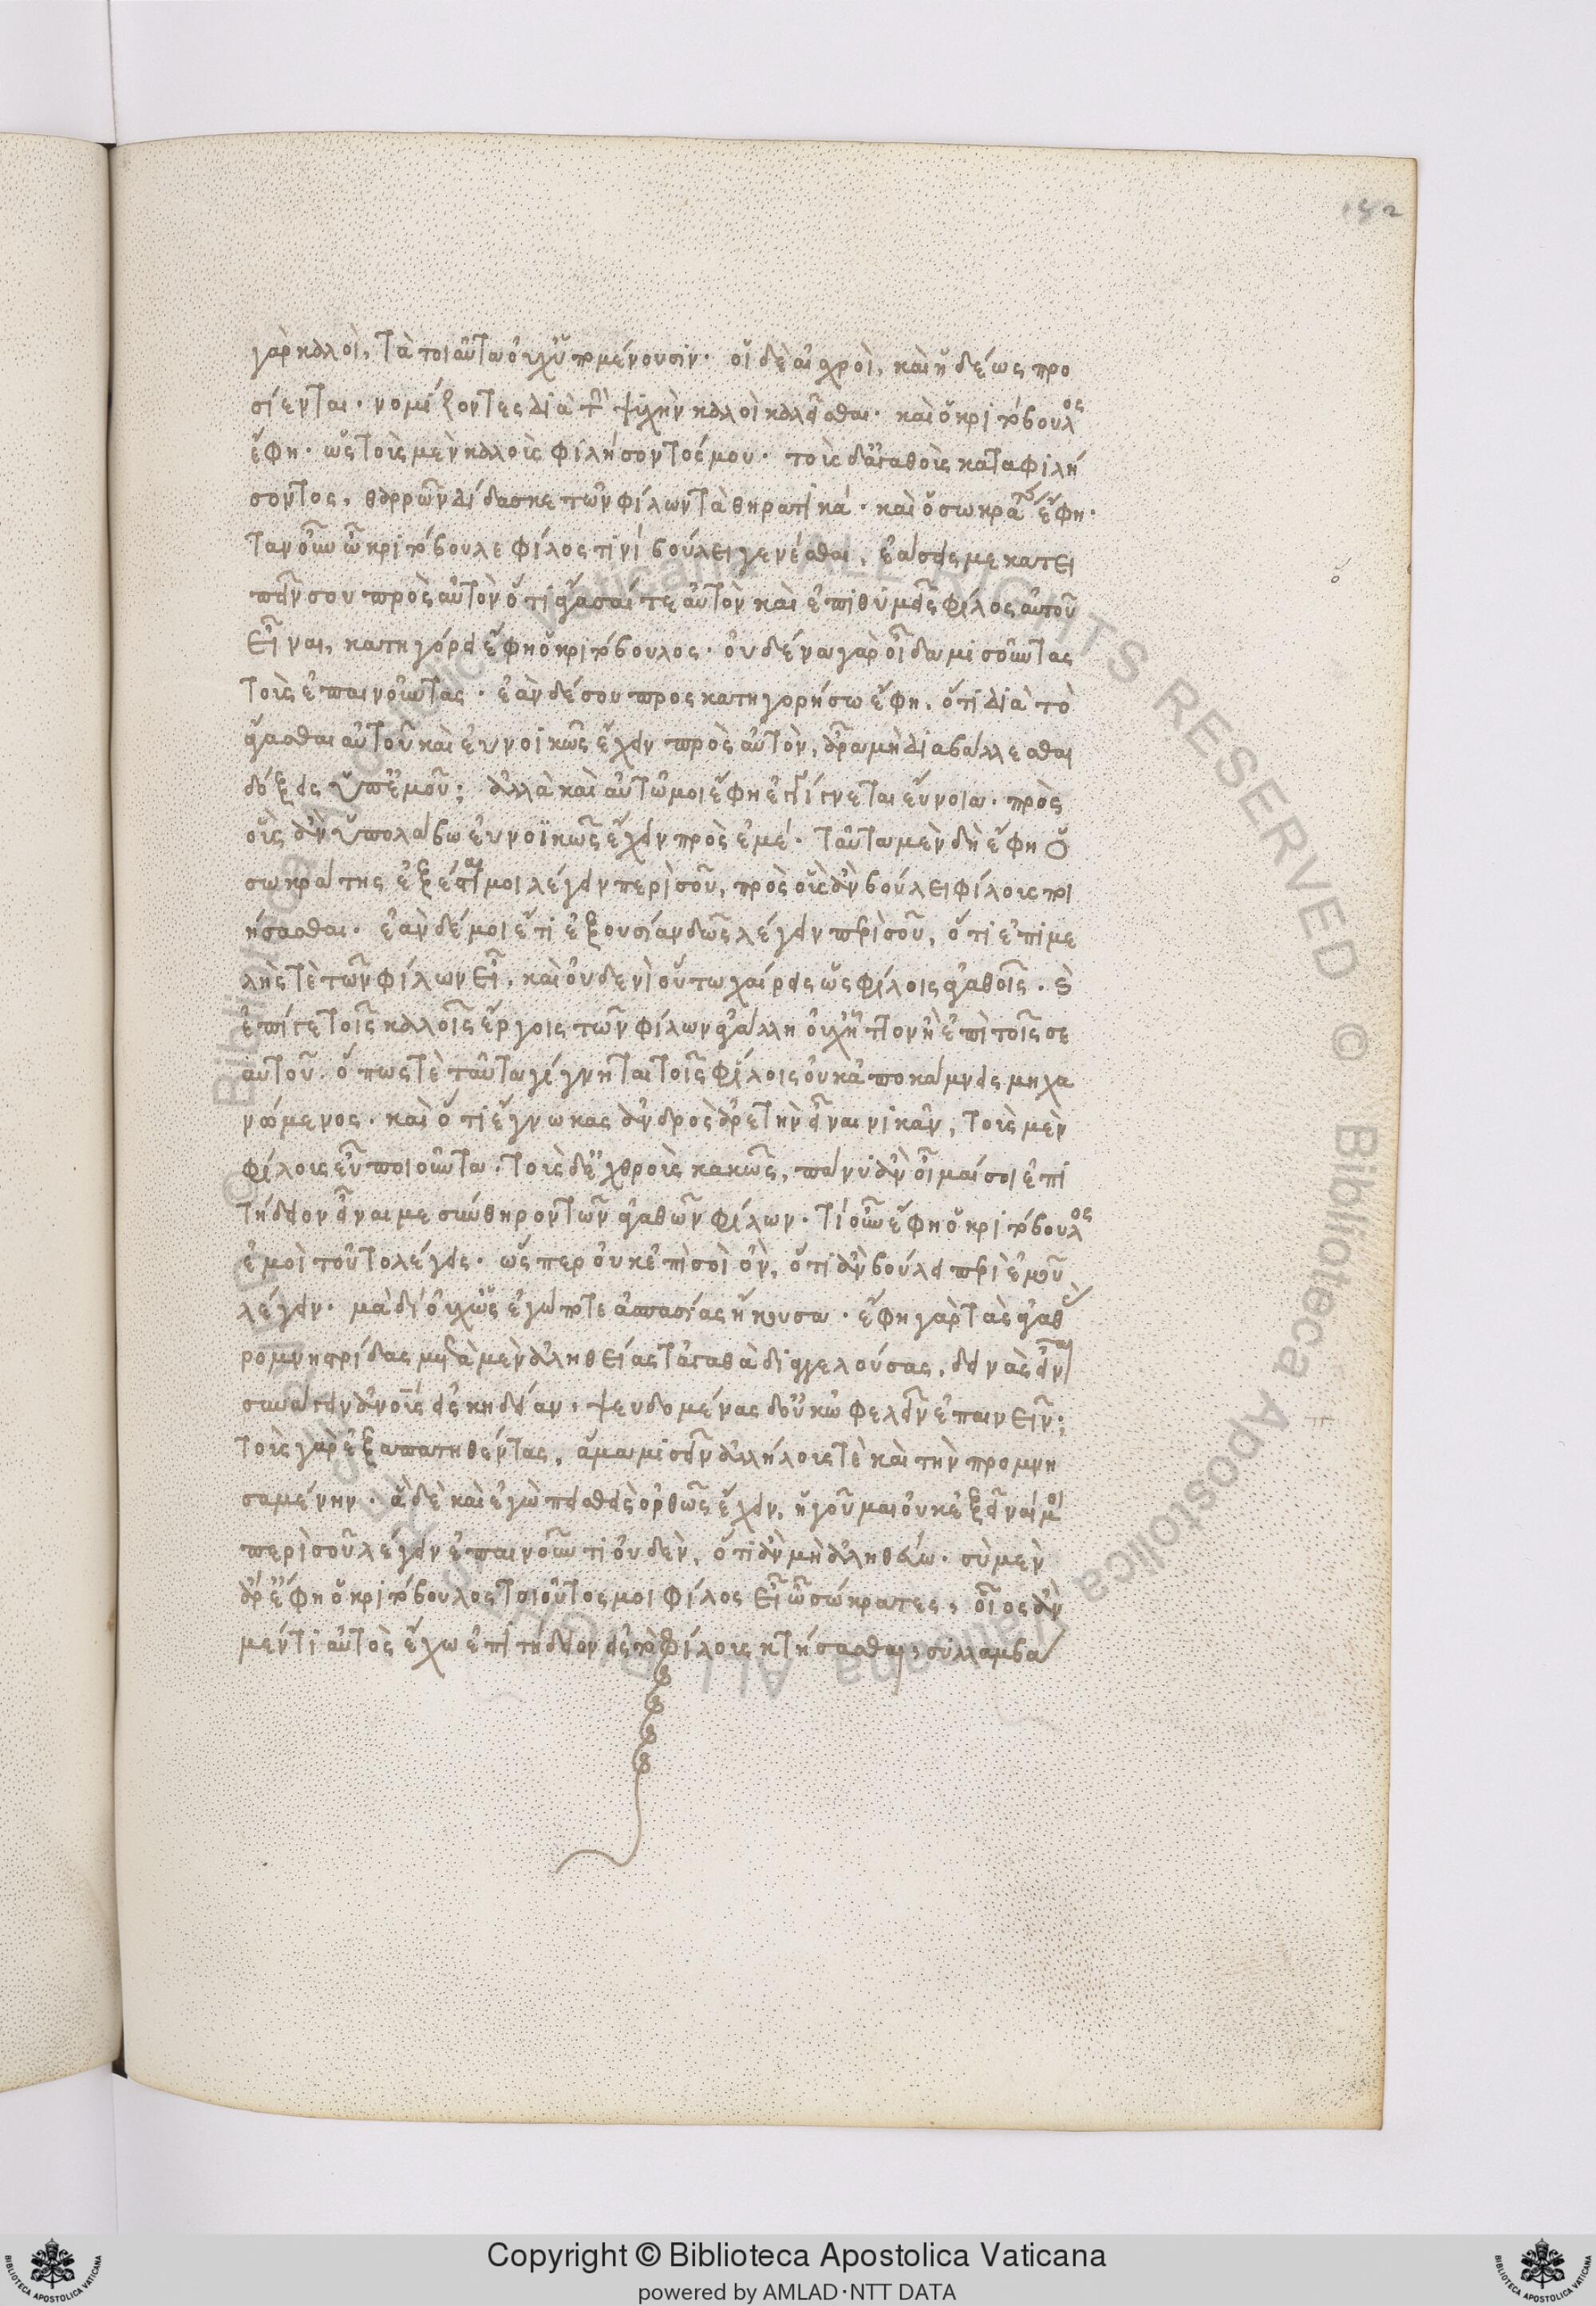 152
γὰρ καλοὶ, τὰ τοιαῦτα οὐχ ὑπομένουσιν· οἱ δὲ αἰσχροὶ, καὶ ἡδέως προ
σίενται· νομίζοντες διὰ τὴν ψυχὴν καλοὶ καλεῖσθαι· καὶ ὁ κριτόβουλος
ἔφη· ὡς τοὺς μὲν καλοὺς φιλήσοντος ἐμοῦ· τοὺς δ' ἀγαθοὺς καταφιλή
σοντος, θαρρῶν δίδασκε τῶν φίλων τὰ θηρατικά· καὶ ὁ σωκράτης ἔφη·
ὅταν οὖν ὦ κριτόβουλε φίλος τινὶ βούλει γενέσθαι, ἐάσεις με κατει
πεῖν σου πρὸς αὐτὸν ὅτι ἄγασαί τε αὐτὸν καὶ ἐπιθυμεῖς φίλος αὐτοῦ
εἶναι, κατηγόρει ἔφη ὁ κριτόβουλος· οὐδένα γὰρ οἶδα μισοῦντας
τοὺς ἐπαινοῦντας· ἐὰν δέ σου προσκατηγορήσω ἔφη, ὅτι διὰ τὸ
ἄγασθαι αὐτοῦ καὶ εὐνοϊκῶς ἔχειν πρὸς αὐτὸν, ἆρα μὴ διαβάλλεσθαι
δόξεις ὑπ' ἐμοῦ; ἀλλὰ καὶ αὐτῷ μοι ἔφη ἐγγίγνεται εὔνοια· πρὸς
οὓς ἂν ὑπολάβω εὐνοϊκῶς ἔχειν πρὸς ἐμέ· ταῦτα μὲν δὴ ἔφη ὁ
σωκράτης ἐξέσται μοι λέγειν περὶ σοῦ, πρὸς οὓς ἂν βούλει φίλους ποι
ήσασθαι· ἐὰν δέ μοι ἔτι ἐξουσίαν δῷς λέγειν περὶ σοῦ, ὅτι ἐπιμε
λής τε τῶν φίλων εἶ, καὶ οὐδενὶ οὕτω χαίρεις ὡς φίλοις ἀγαθοῖς· καὶ
ἐπί τε τοῖς καλοῖς ἔργοις τῶν φίλων ἀγάλλῃ οὐχ ἧττον ἢ ἐπὶ τοῖς σε
αυτοῦ. ὅπως τε ταῦτα γίγνηται τοῖς φίλοις οὐκ ἀποκάμνεις μηχα
νώμενος· καὶ ὅτι ἔγνωκας ἀνδρὸς ἀρετὴν εἶναι νικᾶν, τοὺς μὲν
φίλους εὖ ποιοῦντα. τοὺς δ' ἐχθροὺς κακῶς, πάνυ ἂν οἶμαί σοι ἐπι
τήδειον εἶναί με σύνθηρον τῶν ἀγαθῶν φίλων· τί οὖν ἔφη ὁ κριτόβουλος
ἐμοὶ τοῦτο λέγεις· ὥσπερ οὐκ ἐπὶ σοὶ ὂν, ὅτι ἂν βούλει περὶ ἐμοῦ
λέγειν· μὰ δί' οὐχ ὥς ἐγώ ποτε ἀσπασίας ἤκουσα· ἔφη γὰρ τὰς ἀγαθὰς
προμνηστρίδας μετὰ μὲν ἀληθείας τἀγαθὰ διαγγελούσας, δεινὰς εἶναι
συνάγειν ἀνθρώπους εἰς κηδείαν, ψευδομένας δ' οὐκ ὠφελεῖν ἐπαινεῖν;
τοὺς γὰρ ἐξαπατηθέντας, ἅμα μισεῖν ἀλλήλους τε καὶ τὴν προμνη
σαμένην· ἃ δὲ καὶ ἐγὼ πεισθεὶς ὀρθῶς ἔχειν, ἡγοῦμαι οὐκ ἐξεῖναί μοι
περὶ σοῦ λέγειν ἐπαινοῦντι οὐδὲν, ὅτι ἂν μὴ ἀληθεύω· σὺ μὲν
ἄρ' ἔφη ὁ κριτόβουλος τοιοῦτός μοι φίλος εἶ ὦ σώκρατες, οἷος ἂν
μέν τι αὐτὸς ἔχω ἐπιτήδειον εἰς τὸ φίλους κτήσασθαι, συλλαμβά
Copyright © Biblioteca Apostolica Vaticana
powered by AMLAD·NTT DATA